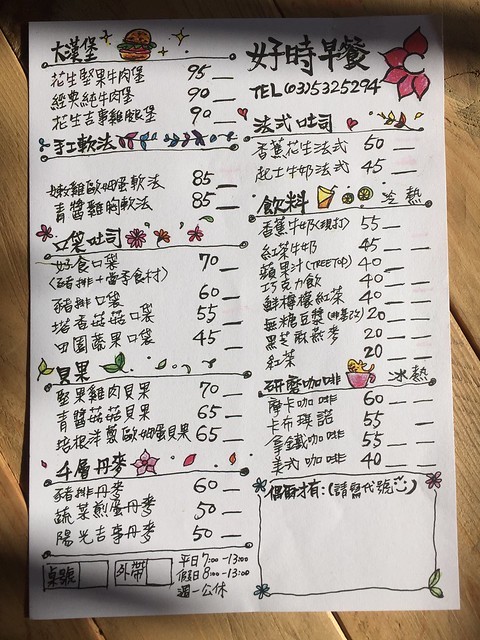 大漢堡
花生堅果牛肉堡 95
經典純牛肉堡 90
花生吉事雞腿堡 90
手工軟法
嫩雞歐姆蛋軟法 85
青醬雞胸軟法 85
口袋吐司
好食口袋 70
(豬排+當季食材)
豬排口袋 60
塔香菇菇口袋 55
田園蔬果口袋 45
貝果
堅果雞肉貝果 70
青醬菇菇貝果 65
培根洋蔥歐姆蛋貝果 65
千層丹麥
豬排丹麥 60
蔬菜煎蛋丹麥 50
陽光吉事丹麥 50
桌號
外帶
平日7:00-13:00
假日8:00-13:00
週一公休
好時早餐
TEL (03)5325294
法式吐司
香蕉花生法式 50
起士牛奶法式 45
飲料 冷 熱
香蕉牛奶(現打) 55
紅茶牛奶 45
蘋果汁(TREETOP) 40
巧克力飲 40
鮮檸檬紅茶 40
無糖豆漿(非基改) 20
黑芝麻燕麥 20
紅茶 20
研磨咖啡 冰 熱
摩卡咖啡 60
卡布琪諾 55
拿鐵咖啡 55
美式咖啡 40
偶爾才有:(請寫代號)